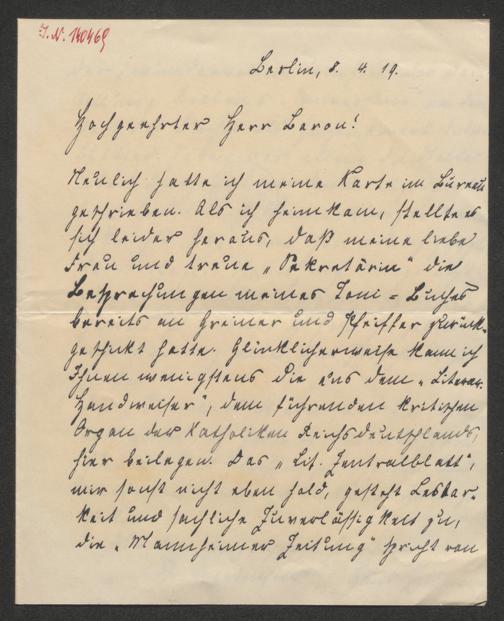 J. N. 140469
Berlin, 8. 4. 19.
Hochgeehrter Herr Baron!
Neulich hatte ich meine Karte im Bureau
geschrieben. Als ich heimkam, stellte es
sich leider heraus, daß meine liebe
Frau und treue „Sekretärin“ die
Besprechungen meines Toni-Buches
bereits an Greiner und Pfeiffer zurück-
geschickt hatte. Glücklicherweise kann ich
Ihnen wenigstens die aus dem „Literar.
Handweiser“, dem führenden kritischen
Organ der Katholiken Reichsdeutschlands,
hier beilegen. Das „Lit. Zentralblatt“,
mir sonst nicht eben hold, gesteht Lesbar-
keit und sachliche Zuverlässigkeit zu,
die „Mannheimer Zeitung“ spricht von